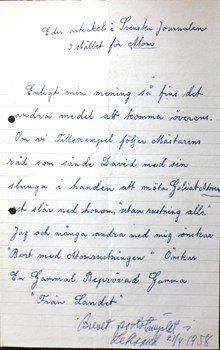 Eder artickel i Svenska Journalen
i stället för Atom
Enligt min mening så fins det
andra medel att komma överens.
Om vi Tillexempel följer Mästarens
råd som sände David med sin
slunga i handen att möta Goliat Atomen
och slår ned honom "utan rustning alls"
Jag och många andra med mig önskar
"Bort med Atomrustningen" Önskar
En Gammal Beprövad Gumma
"Från Landet"
Brevet poststämplat
Leksand 21/4 1958